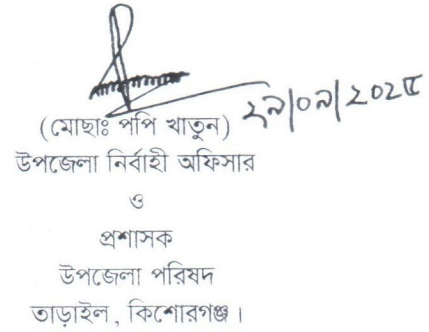 ২৯/০৯/২০২৫
(মোছাঃ পপি খাতুন)
উপজেলা নির্বাহী অফিসার
ও
প্রশাসক
উপজেলা পরিষদ
তাড়াইল, কিশোরগঞ্জ।